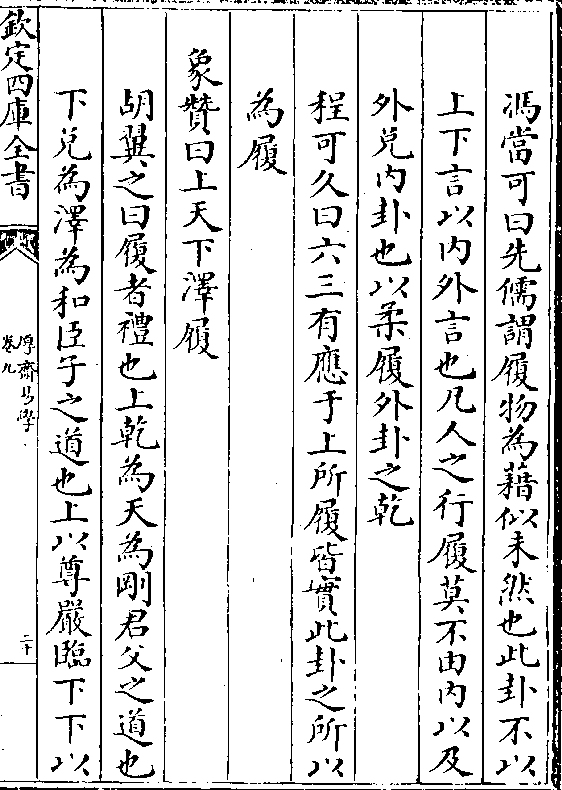 馮當可曰先儒謂履物為藉似未然也此卦不以
上下言以内外言也凡人之行履莫不由内以及
外兌内卦也以柔履外卦之乾
程可久曰六三有應于上所履皆實此卦之所以
為履
象贊曰上天下澤履
胡翼之曰履者禮也上乾為天為剛君父之道也
下兌為澤為和臣子之道也上以尊嚴臨下下以
欽定四庫全書
厚齋易學
卷九
二十